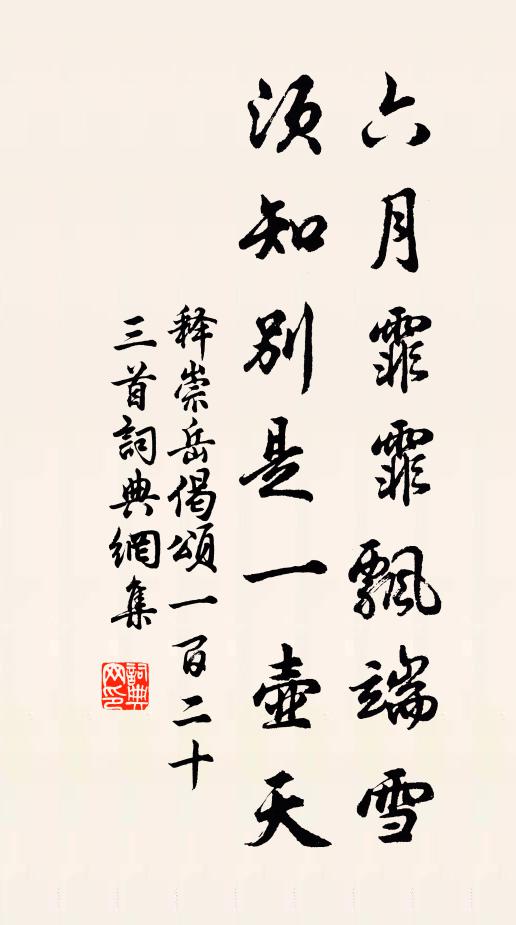 六月霏霏飄端雪
須知別是一壺天
释崇岳偈頌一百二十
三首詞典網集
詞典
网印